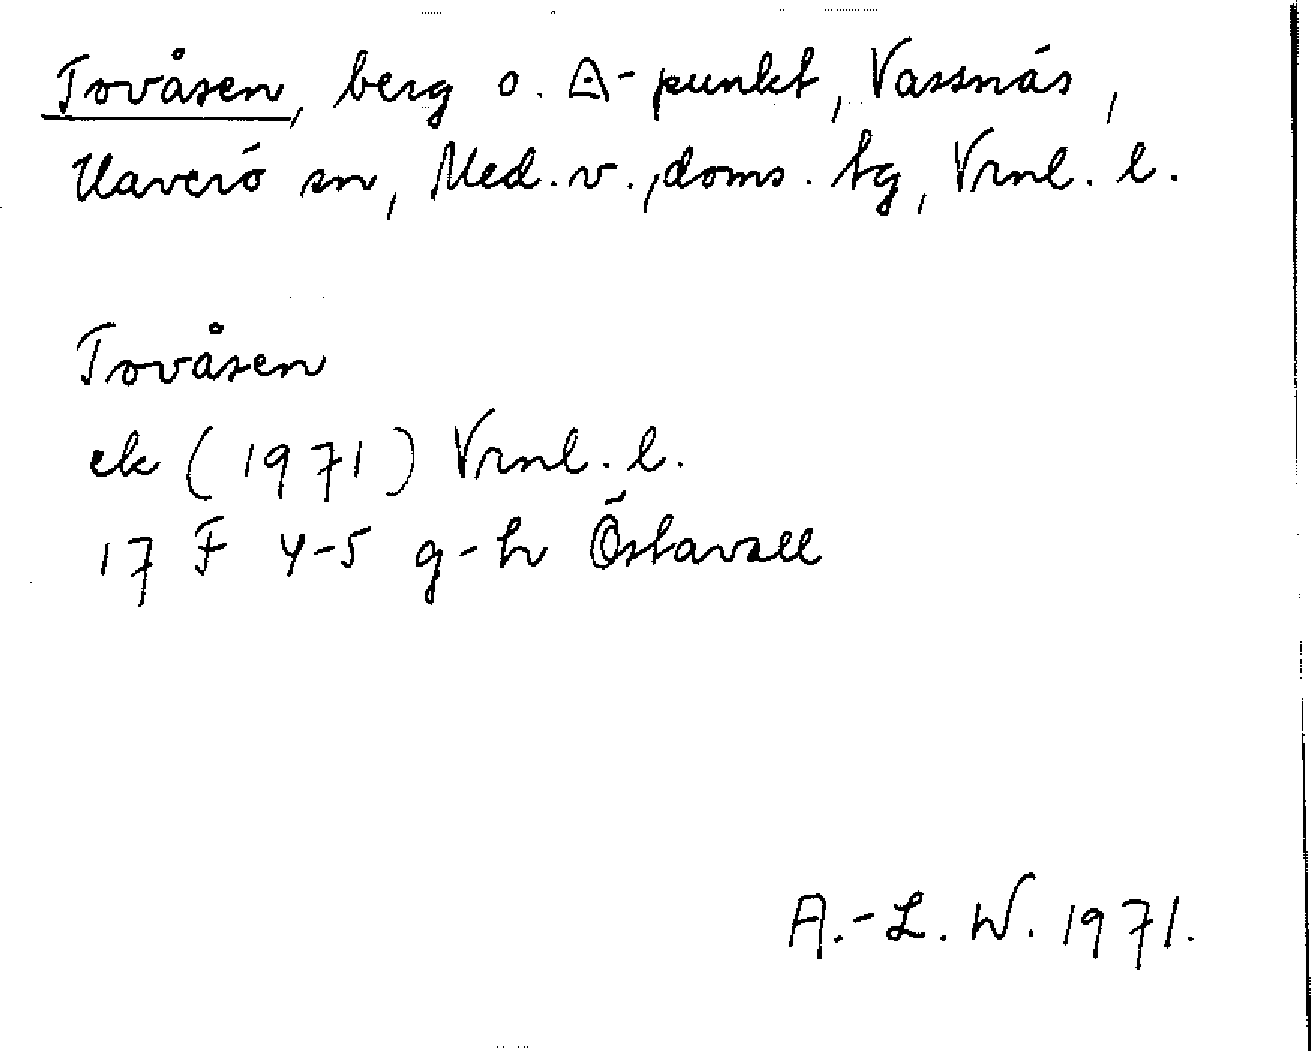 Tovåsen, berg o. △-punkt, Vassnäs,
Haverö sn, Med. v., doms. tg, Vrnl. l.
Tovåsen
ek (1971) Vrnl. l.
17 F 4-5 g-h Östavall
A.-L. W. 1971.